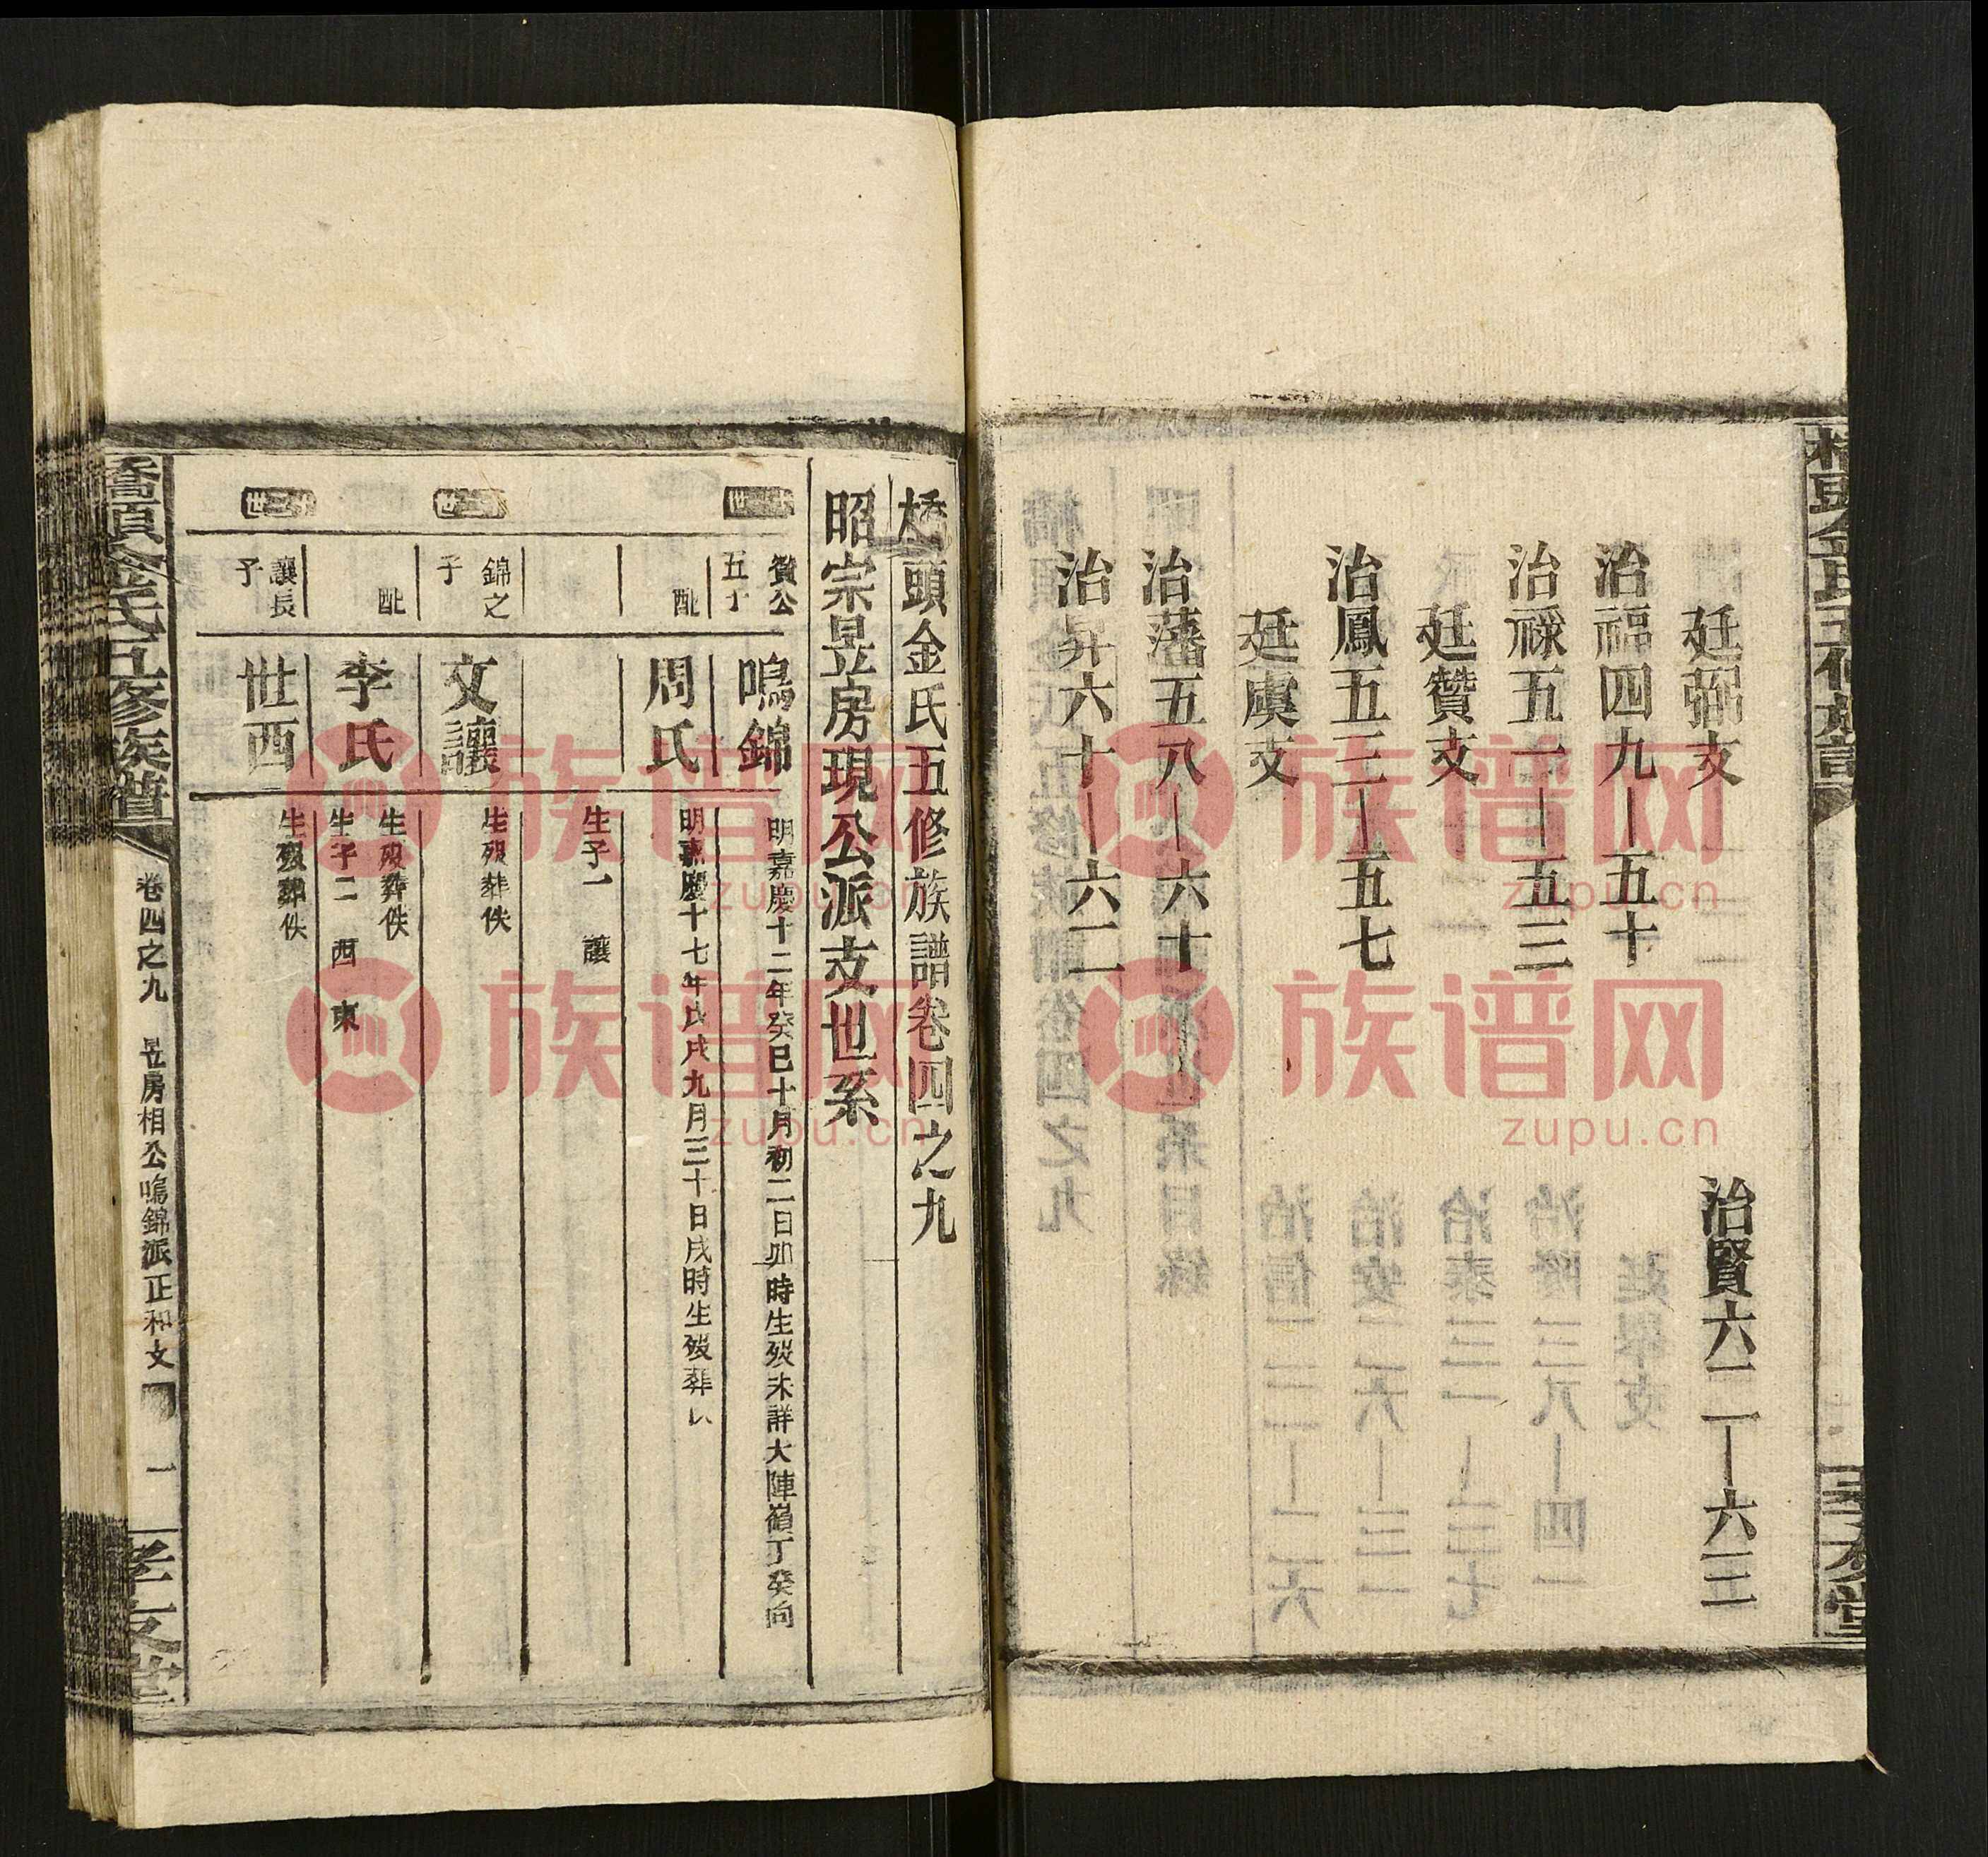 廷弼支
治賢六二—六三
治福四九—五十
治祿五一—五三
廷贊支
治鳳五三—五七
廷虞支
治藩五八—六十
治昇六十—六二
橋頭金氏五修族譜卷四之九
昭宗昱房現公派支世系
贊公
五丁
鳴錦
明嘉慶十二年癸巳十月初二日卯時生歿未詳大陣嶺丁癸向
配
周氏
明嘉慶十七年戊戌九月三十日戌時生歿葬
生子一 讓
錦之
子
文讓
生歿葬佚
配
李氏
生歿葬佚
生子二 西 東
讓長
子
世西
生歿葬佚
橋頭金氏五修族譜
卷四之九 昱房相公鳴錦派正和文 一
孝友堂
族谱网
zupu.cn
族谱网
zupu.cn
族谱网
zupu.cn
族谱网
zupu.cn